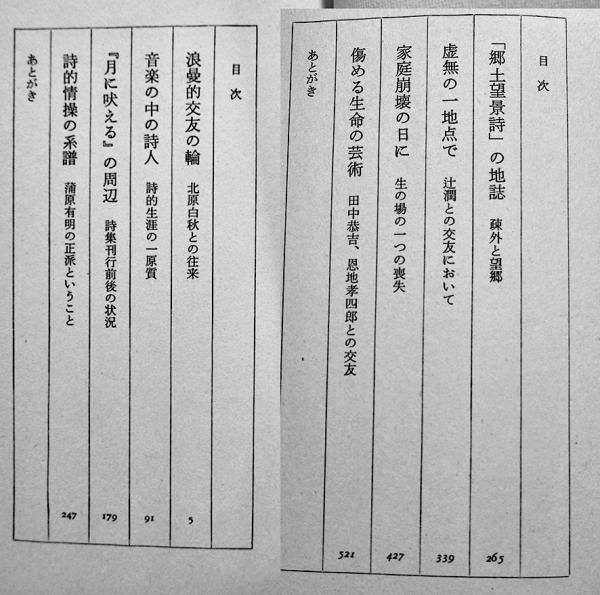 目次
「郷土望景詩」の地誌 疎外と望郷 265
虚無の一地点で 辻潤との交友において 339
家庭崩壊の日に 生の場の一つの喪失 427
傷める生命の芸術 田中恭吉、恩地孝四郎との交友 521
あとがき
目次
浪曼的交友の輪 北原白秋との往来 5
音楽の中の詩人 詩的生涯の一原質 91
『月に吠える』の周辺 詩集刊行前後の状況 179
詩的情操の系譜 蒲原有明の正派ということ 247
あとがき